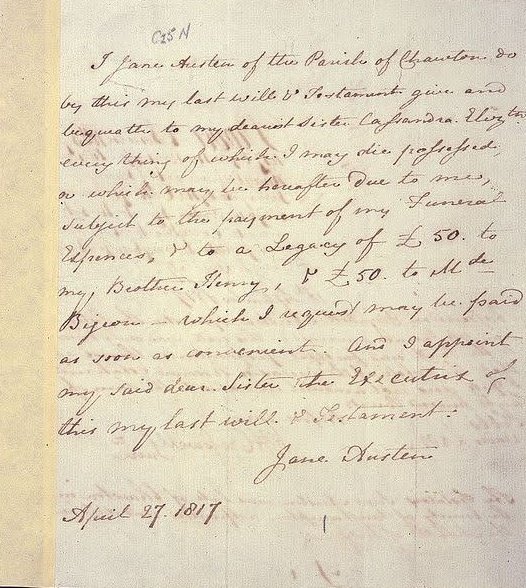 C25N
I Jane Austen of the Parish of Chawton do
by this my last will & Testament give and
bequeath to my dearest Sister Cassandra Elizth
every thing of which I may die possessed,
or which may be hereafter due to me,
subject to the payment of my Funeral
Expences, & to a Legacy of £50. to
my Brother Henry, & £50. to Mde
Bigeon - which I request may be paid
as soon as convenient. And I appoint
my said dear Sister the Executrix of
this my last will & Testament.
Jane Austen
April 27. 1817